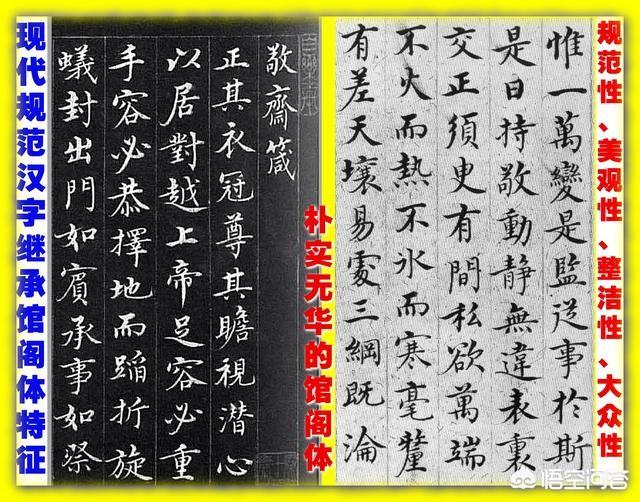 现代规范汉字继承馆阁体特征
敬齋箴
正其衣冠尊其瞻視潛心
以居對越上帝足容必重
手容必恭擇地而蹈折旋
蟻封出門如賓承事如祭
朴实无华的馆阁体
惟一萬變是監從事於斯
是曰持敬動靜無違表裏
交正須臾有間私欲萬端
不火而熱不冰而寒毫釐
有差天壤易處三綱既淪
规范性、美观性、整洁性、大众性
悟空问答